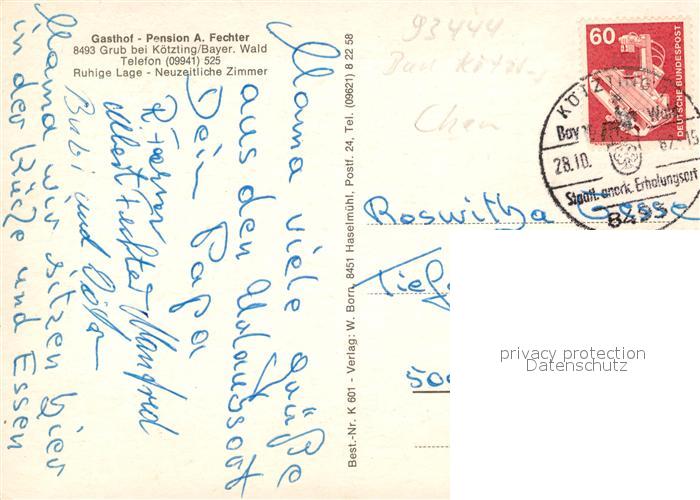 Gasthof - Pension A. Fechter
8493 Grub bei Kötzting/Bayer. Wald
Telefon (09941) 525
Ruhige Lage - Neuzeitliche Zimmer
Mama viele Grüße
aus den Urlaubsort
Dein Papa
Albert Fechter Manfred
Bubi und
Mama wir sitzen hier
in der Küche und Essen
Best.-Nr. K 601 - Verlag: W. Born, 8451 Haselmühl, Postf. 24, Tel. (09621) 8 22 58
93444
Bad Kötzting
Cham
60
DEUTSCHE BUNDESPOST
KÖTZTING
Bayer. Wald
28.10.
Staatl. anerk. Erholungsort
8493
Roswitha
Tief
500
privacy protection
Datenschutz